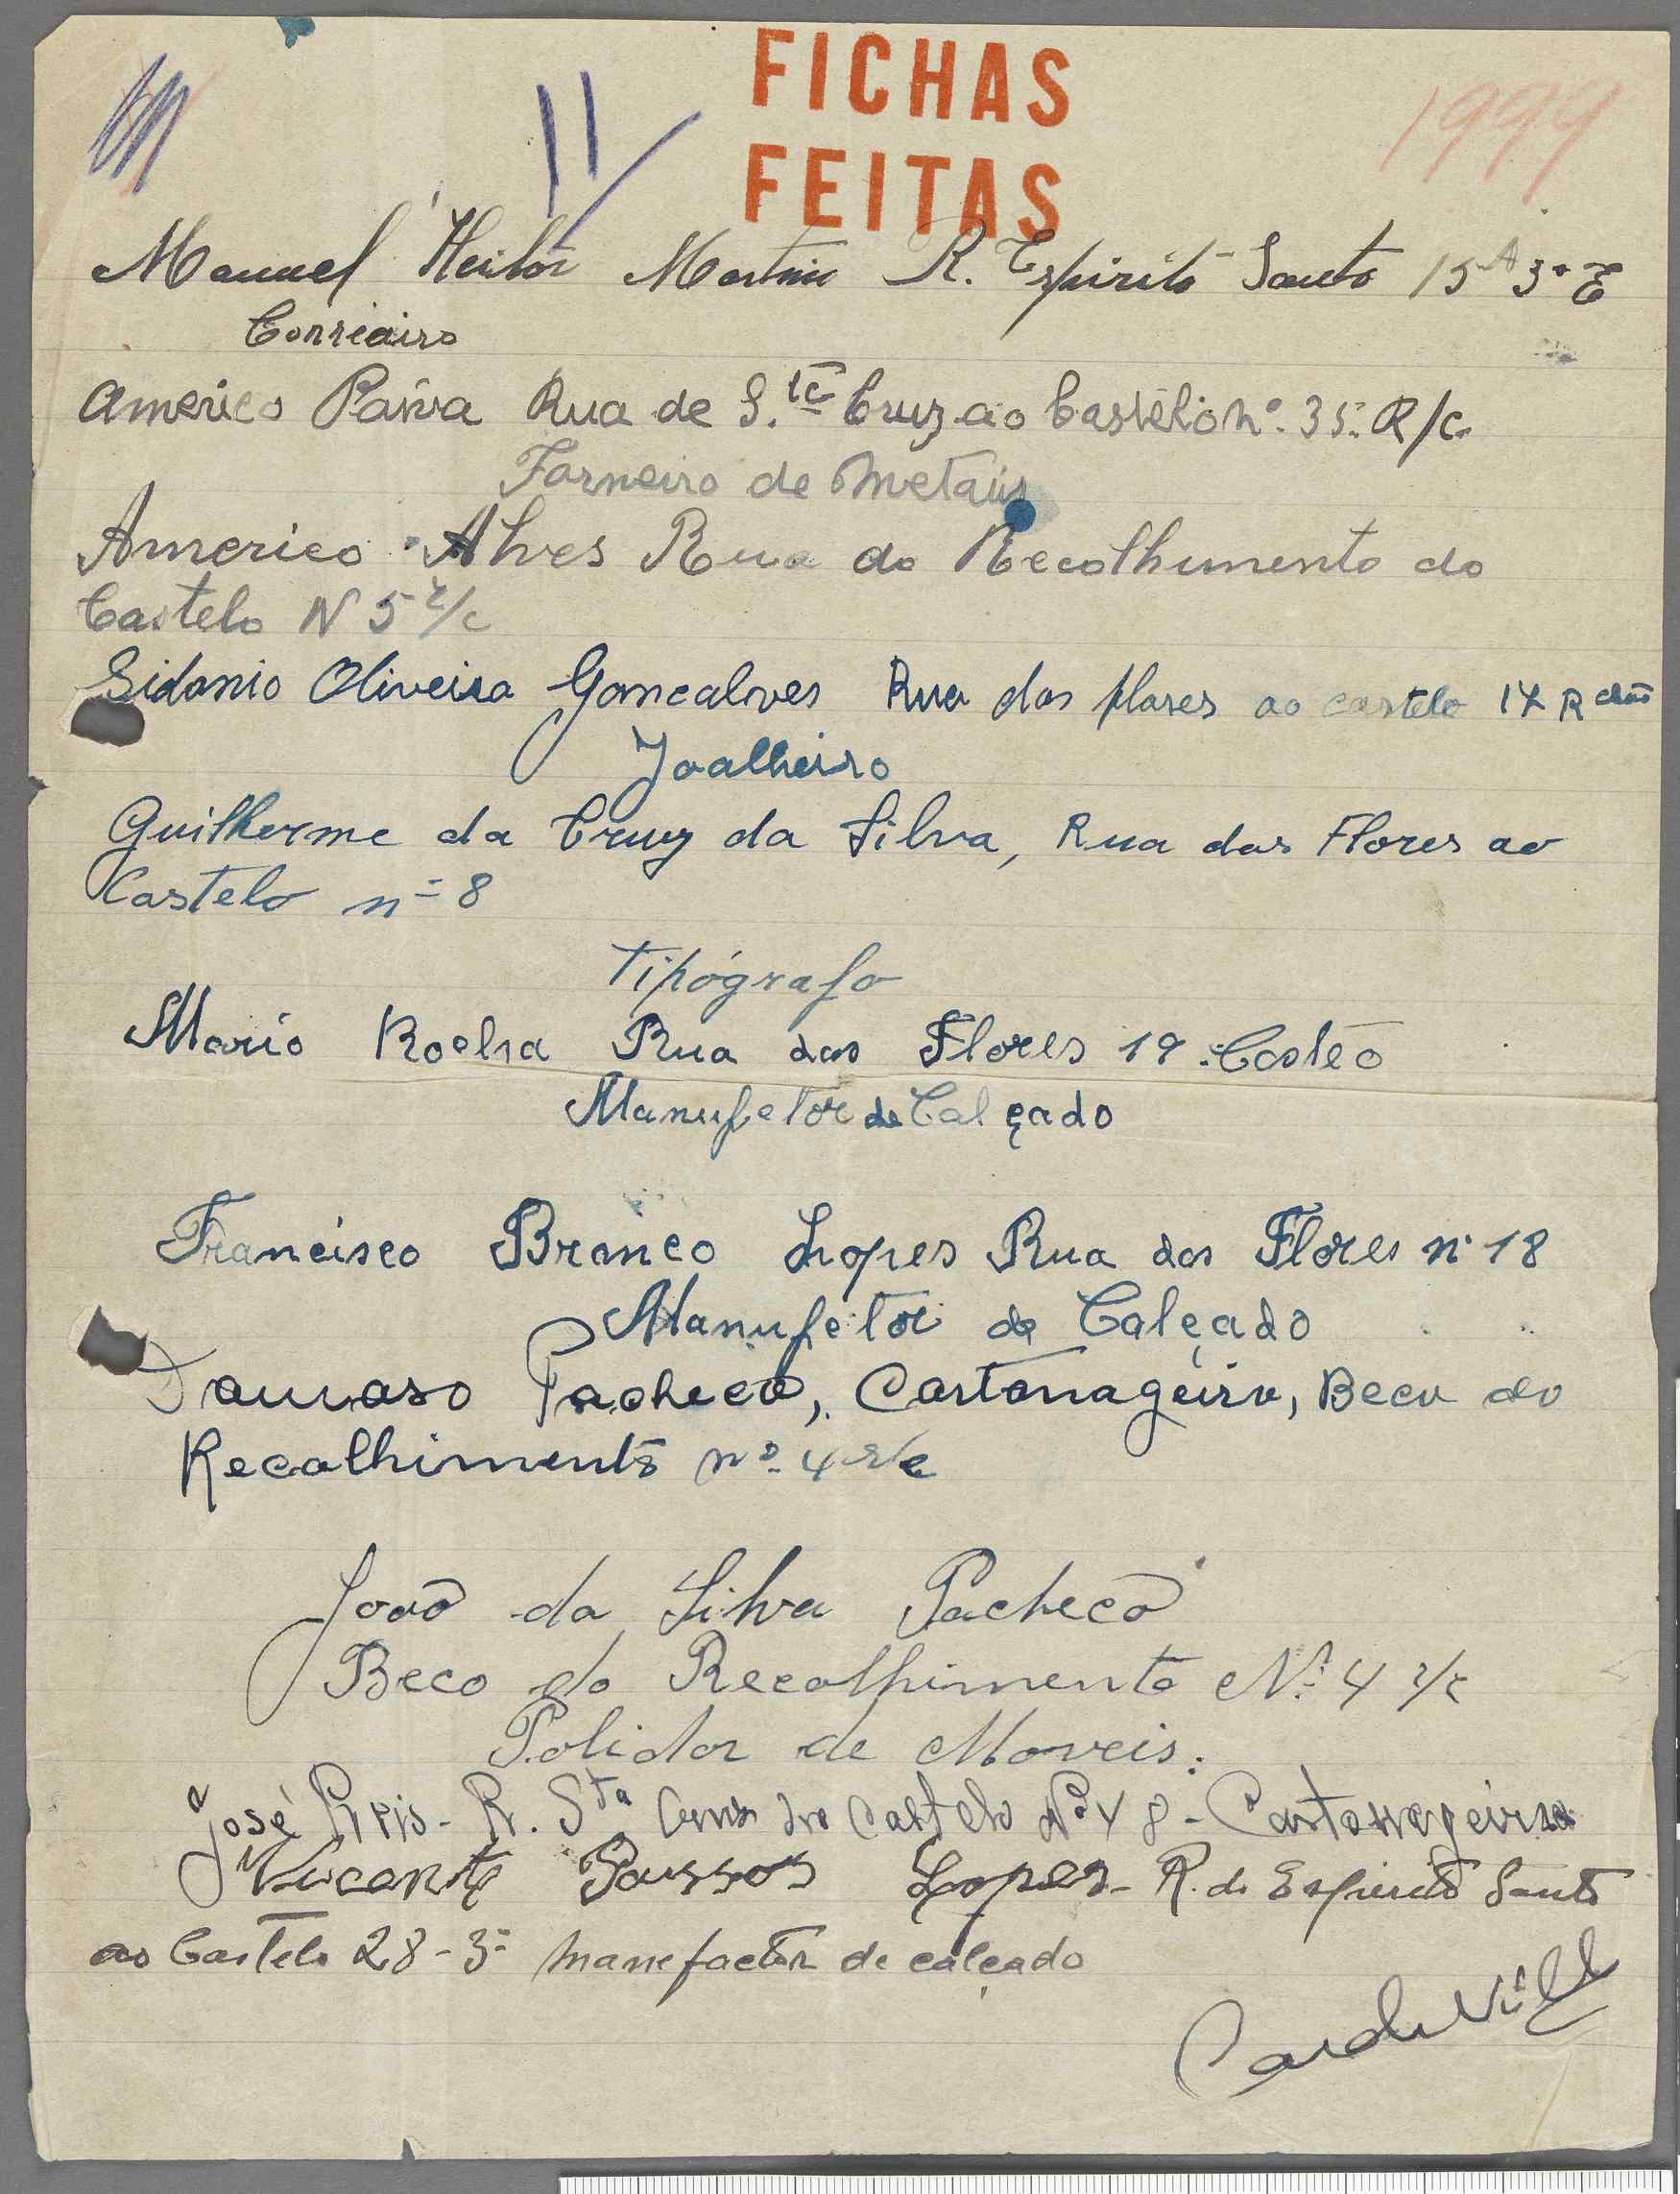 FICHAS
FEITAS
11
1999
Manuel Heitor Martins R. Espirito Santo 15 A 3º E
Correeiro
Americo Paiva Rua de S.ta Cruz ao Castelo nº. 35. R/c.
Torneiro de Metais
Americo Alves Rua do Recolhumento do
Castelo N 5 r/c
Sidonio Oliveira Goncalves Rua das flores ao castelo 17 R chão
Joalheiro
Guilherme da Cruz da Silva, Rua das Flores ao
Castelo nº 8
Tipógrafo
Mario Rocha Rua das Flores 19 Casteo
Manufetor de Calçado
Francisco Branco Lopes Rua das Flores nº 18
Manufetor de Calçado
Damaso Pacheco, Cartonageiro, Beco do
Recolhimento nº. 4 r/c
João da Silva Pacheco
Beco do Recolhimento Nº 4 r/c
Polidor de Moveis.
José Reis - R. Sta Cruz do Castelo Nº 48 - Cartonageiro
Vicente Passos Lopes - R. do Espirito Santo
ao Castelo 28-3º manefactor de calçado